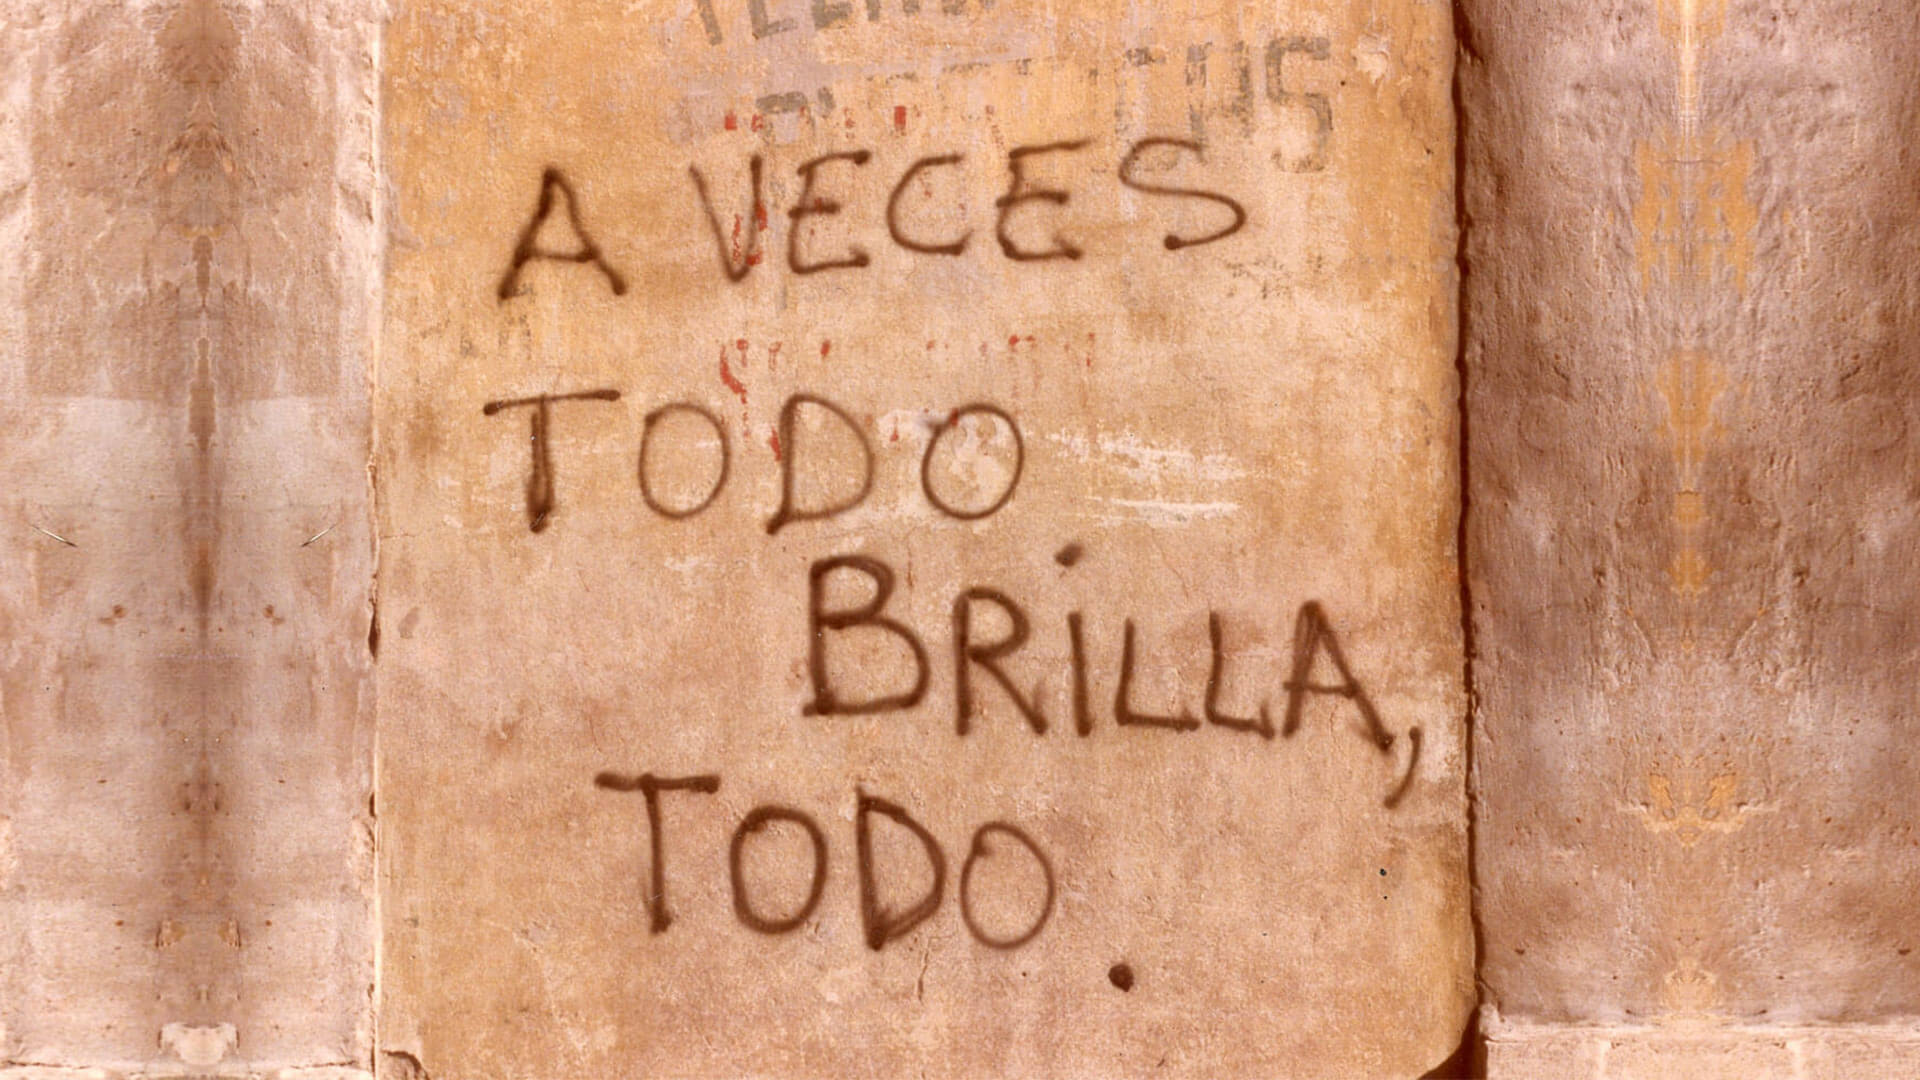 A VECES
TODO
BRiLLA,
TODO.